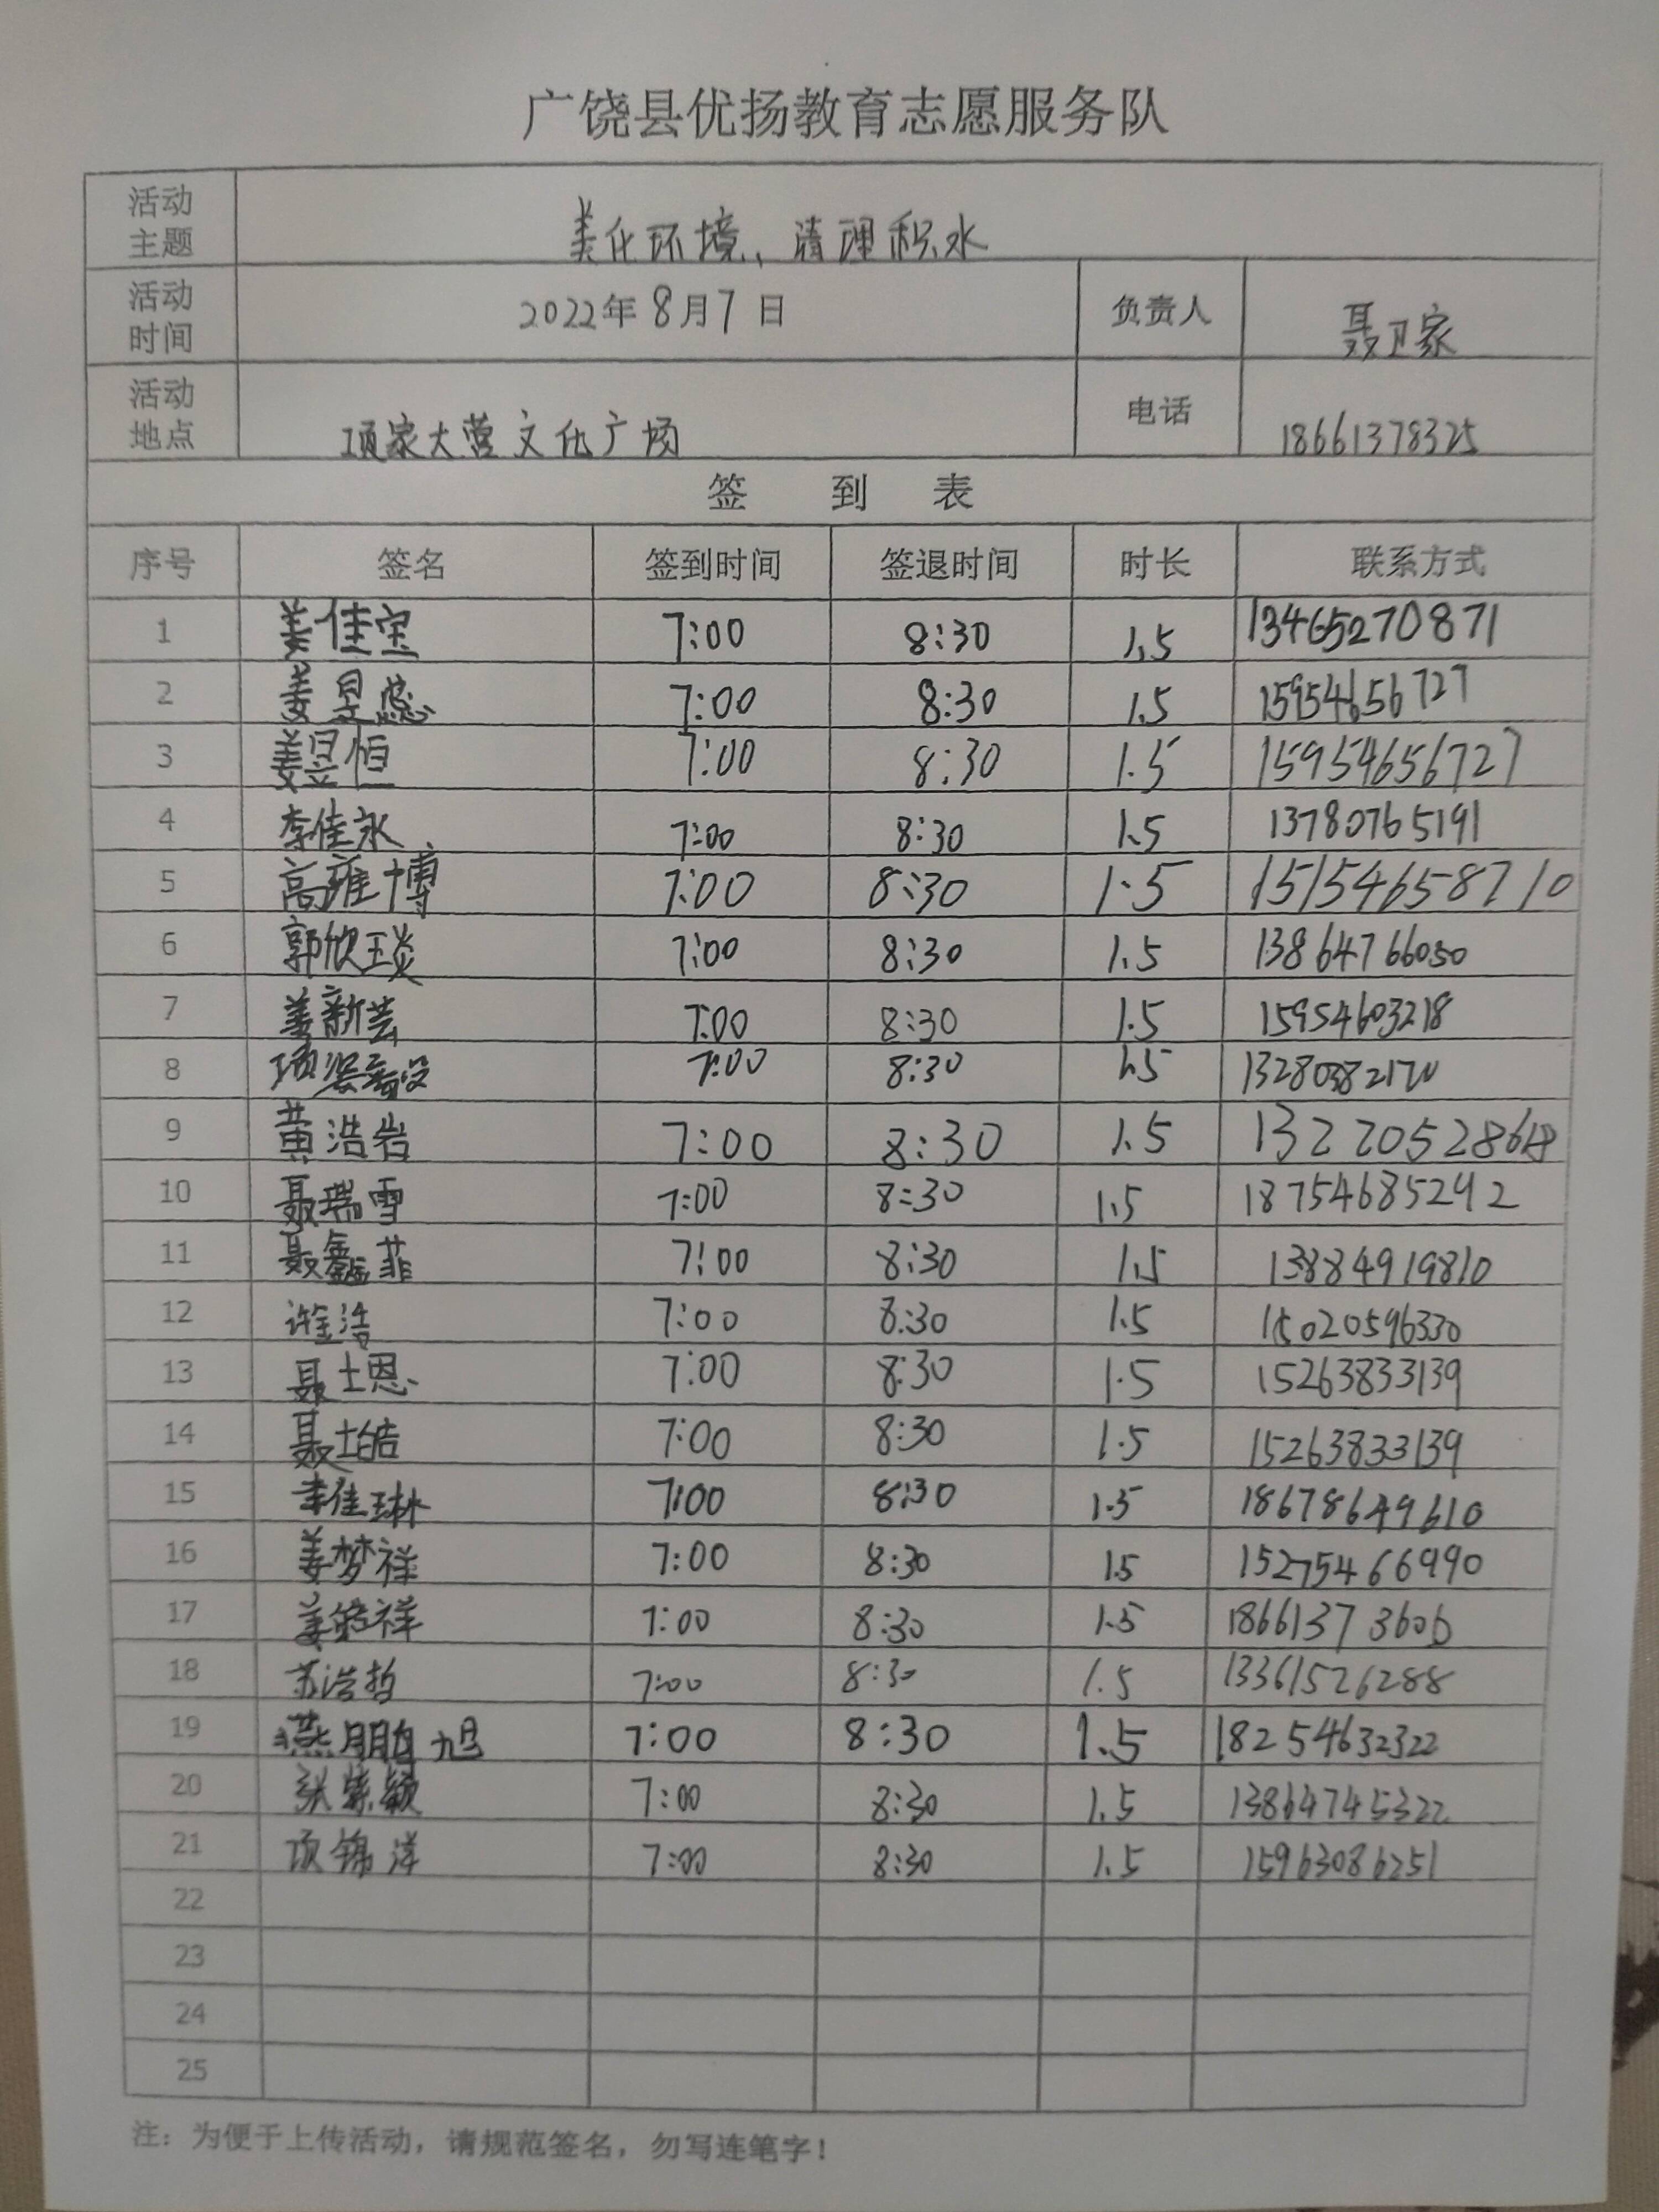 广饶县优扬教育志愿服务队
活动主题 美化环境、清理积水
活动时间 2022年8月7日 负责人 聂卫家
活动地点 项家大营文化广场 电话 18661378325
签 到 表
序号 签名 签到时间 签退时间 时长 联系方式
1 姜佳宝 7:00 8:30 1.5 13465270871
2 姜昱 7:00 8:30 1.5 15954656727
3 姜昱恒 7:00 8:30 1.5 15954656727
4 李佳永 7:00 8:30 1.5 13780765191
5 高维博 7:00 8:30 1.5 15154658710
6 郭欣琰 7:00 8:30 1.5 13864766050
7 姜新芸 7:00 8:30 1.5 15954603218
8 项 7:00 8:30 1.5
9 黄浩岩 7:00 8:30 1.5
10 聂瑞雪 7:00 8:30 1.5 18754685292
11 聂鑫菲 7:00 8:30 1.5 13884919810
12 浩 7:00 8:30 1.5 15020596330
13 聂士恩 7:00 8:30 1.5 15263833139
14 聂士皓 7:00 8:30 1.5 15263833139
15 李佳琳 7:00 8:30 1.5 18678649610
16 姜梦祥 7:00 8:30 1.5 15275466990
17 姜 祥 7:00 8:30 1.5 18661373606
18 苏浩哲 7:00 8:30 1.5 13361526288
19 燕鹏旭 7:00 8:30 1.5 18254632322
20 张紫颖 7:00 8:30 1.5 13864745322
21 项锦洋 7:00 8:30 1.5 15963086251
22
23
24
25
注：为便于上传活动，请规范签名，勿写连笔字！